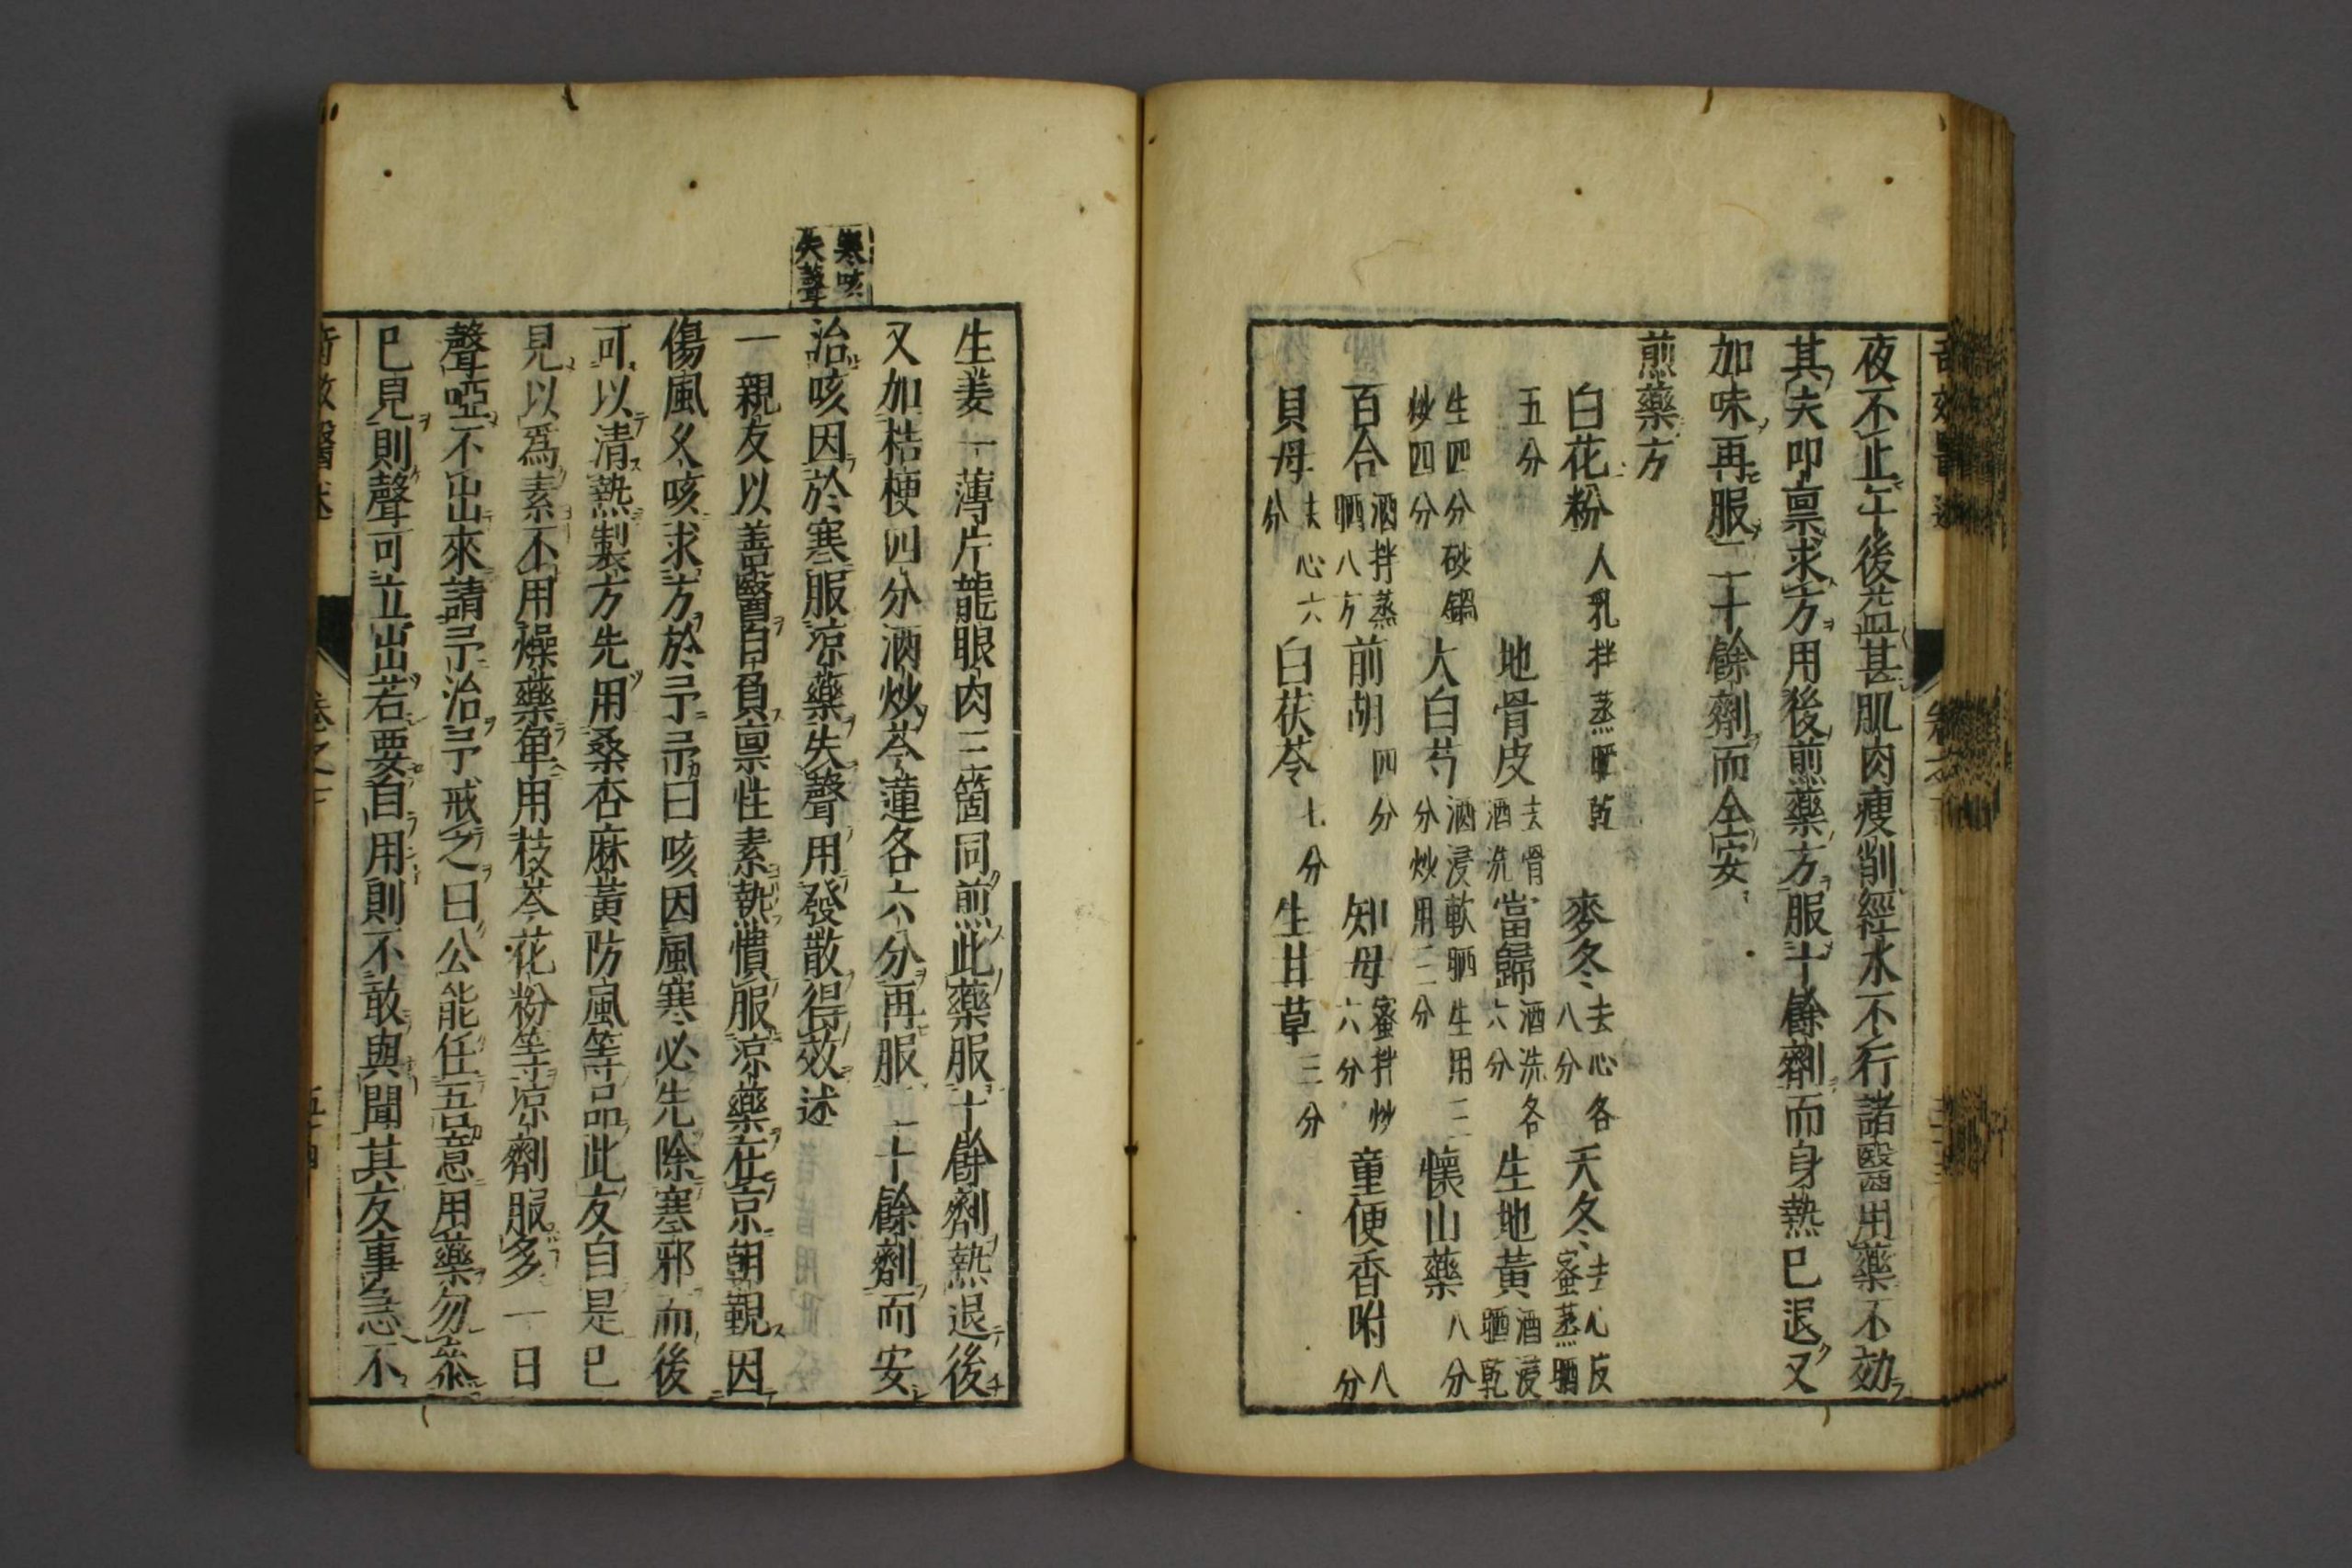 夜不止午後益甚肌肉瘦削經水不行諸醫用藥不効
其夫叩禀求方用後煎藥方服十餘劑而身熱已退又
加味再服二十餘劑而全安
煎藥方
白花粉 人乳拌蒸晒乾 麥冬 去心各八分 天冬 去心蜜蒸晒
五分 地骨皮 去骨酒洗 當歸 酒洗各六分 生地黃 酒浸晒乾
生四分砂鍋炒四分 大白芍 酒浸軟晒生用三分炒用二分 懷山藥 八分
百合 酒拌蒸晒八分 前胡 四分 知母 蜜拌炒六分 童便香附 八分
貝母 去心六分 白茯苓 七分 生甘草 三分
寒咳
失聲
生姜一薄片龍眼肉三箇同煎此藥服十餘劑熱退後
又加桔梗四分酒炒芩蓮各六分再服二十餘劑而安
治咳因於寒服凉藥失聲用發散得效述
一親友以善醫自負禀性素熱慣服凉藥在京朝覲因
傷風久咳求方於予予曰咳因風寒必先除寒邪而後
可以清熱製方先用桑杏麻黃防風等品此友自是已
見以爲素不用燥藥單用枝芩花粉等凉劑服多一日
聲啞不出來請予治予戒之曰公能任吾意用藥勿叅
已見則聲可立出若要自用則不敢與聞其友事急不